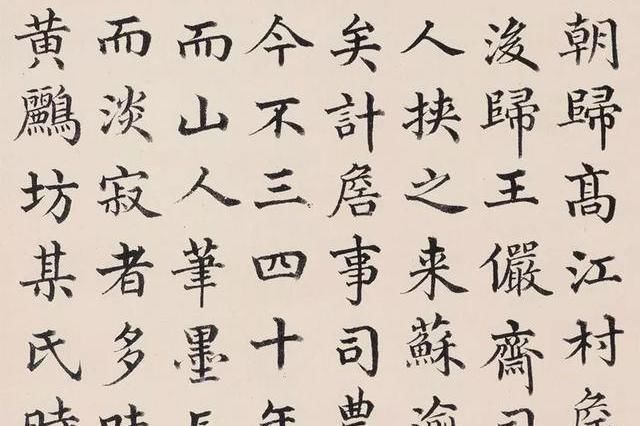 朝歸高江村詹
後歸王儼齋司
人挟之来蘇渝
矣計詹事司農
今不三四十年
而山人筆墨
而淡寂者多時
黄鸝坊某氏時